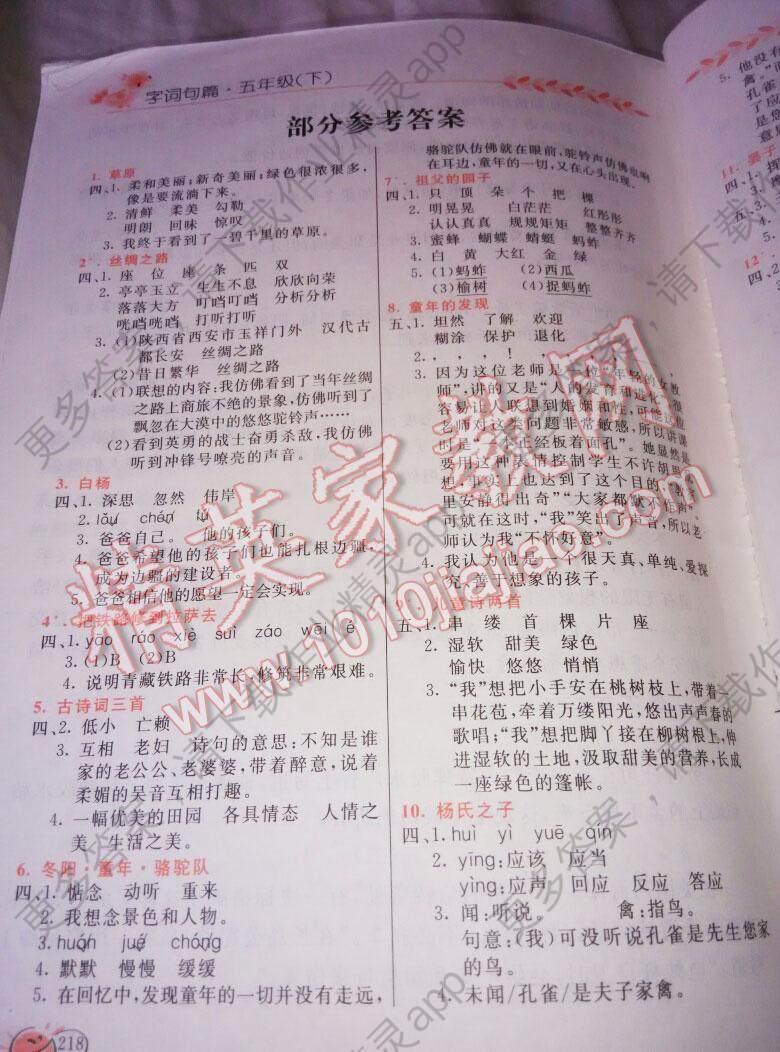 字词句篇·五年级(下)
部分参考答案
1. 草原
四、1. 柔和美丽;新奇美丽;绿色很浓很多,
像是要流淌下来。
2. 清鲜 柔美 勾勒
明朗 回味 惊叹
3. 我终于看到了一碧千里的草原。
2*. 丝绸之路
四、1. 座 位 座 条 匹 双
2. 亭亭玉立 生生不息 欣欣向荣
落落大方 叮当叮当 分析分析
咣当咣当 打听打听
3. (1)陕西省西安市玉祥门外 汉代古
都长安 丝绸之路
(2)昔日繁华 丝绸之路
4. (1)联想的内容:我仿佛看到了当年丝绸
之路上商旅不绝的景象,仿佛听到了
飘忽在大漠中的悠悠驼铃声……
(2)看到英勇的战士奋勇杀敌,我仿佛
听到冲锋号嘹亮的声音。
3. 白杨
四、1. 深思 忽然 伟岸
2.
3. 爸爸自己。 他的孩子们。
4. 爸爸希望他的孩子们也能扎根边疆,
成为边疆的建设者。
5. 爸爸相信他的愿望一定会实现。
4*. 把铁路修到拉萨去
四、1. yāo ráo xiè suì záo wēi é
3. (1)B (2)B
4. 说明青藏铁路非常长,修筑非常艰难。
5. 古诗词三首
四、2. 低小 亡赖
3. 互相 老妇 诗句的意思:不知是谁
家的老公公、老婆婆,带着醉意,说着
柔媚的吴音互相打趣。
4. 一幅优美的田园 各具情态 人情之
美 生活之美
6. 冬阳·童年·骆驼队
四、1. 惦念 动听 重来
2. 我想念景色和人物。
3. huán jué chóng
4. 默默 慢慢 缓缓
5. 在回忆中,发现童年的一切并没有走远,
218
骆驼队仿佛就在眼前,驼铃声仿佛回响
在耳边,童年的一切,又在心头出现。
7*. 祖父的园子
四、1. 只 顶 朵 个 把 棵
2. 明晃晃 白茫茫 红彤彤
认认真真 规规矩矩 整整齐齐
3. 蜜蜂 蝴蝶 蜻蜓 蚂蚱
4. 白 黄 大红 金 绿
5. (1)蚂蚱 (2)西瓜
(3)榆树 (4)捉蚂蚱
8. 童年的发现
五、1. 坦然 了解 欢迎
糊涂 保护 退化
2. , , ! , 。
3. 因为这位老师是一位“年轻的女教
师”,讲的又是“人的发育和进化”,很
容易让人联想到婚姻和性,可能这位
老师对这类问题非常敏感,所以讲课
时是“一本正经板着面孔”。她显然是
要用这种表情控制学生不许胡思
事实上也达到了这个目的:“教室
里安静得出奇”“大家都默不作声”。
可就在这时,“我”笑出了声音,所以老
师认为“我”“不怀好意”。
4. 我认为他是一个很天真、单纯、爱探
究、善于想象的孩子。
9. 儿童诗两首
五、1. 串 缕 首 棵 片 座
2. 湿软 甜美 绿色
愉快 悠悠 悄悄
3. “我”想把小手安在桃树枝上,带着一
串花苞,牵着万缕阳光,悠出声声春的
歌唱;“我”想把脚丫接在柳树根上,伸
进湿软的土地,汲取甜美的营养,长成
一座绿色的篷帐。
10. 杨氏之子
四、1. huì yì yuē qín
2. yīng:应该 应当
yìng:应声 回应 反应 答应
3. 闻:听说。 禽:指鸟。
句意:(我)可没听说孔雀是先生您家
的鸟。
4. 未闻/孔雀/是夫子家禽。
5. 他没有
禽。”
孔雀
了
是
11. 晏子
四、1.
12*.
精英家教网
www.1010jiajiao.com
更多答案,请下载作业精灵app
更多答案,请下载作业精灵app
更多答案,请下载作业精灵app